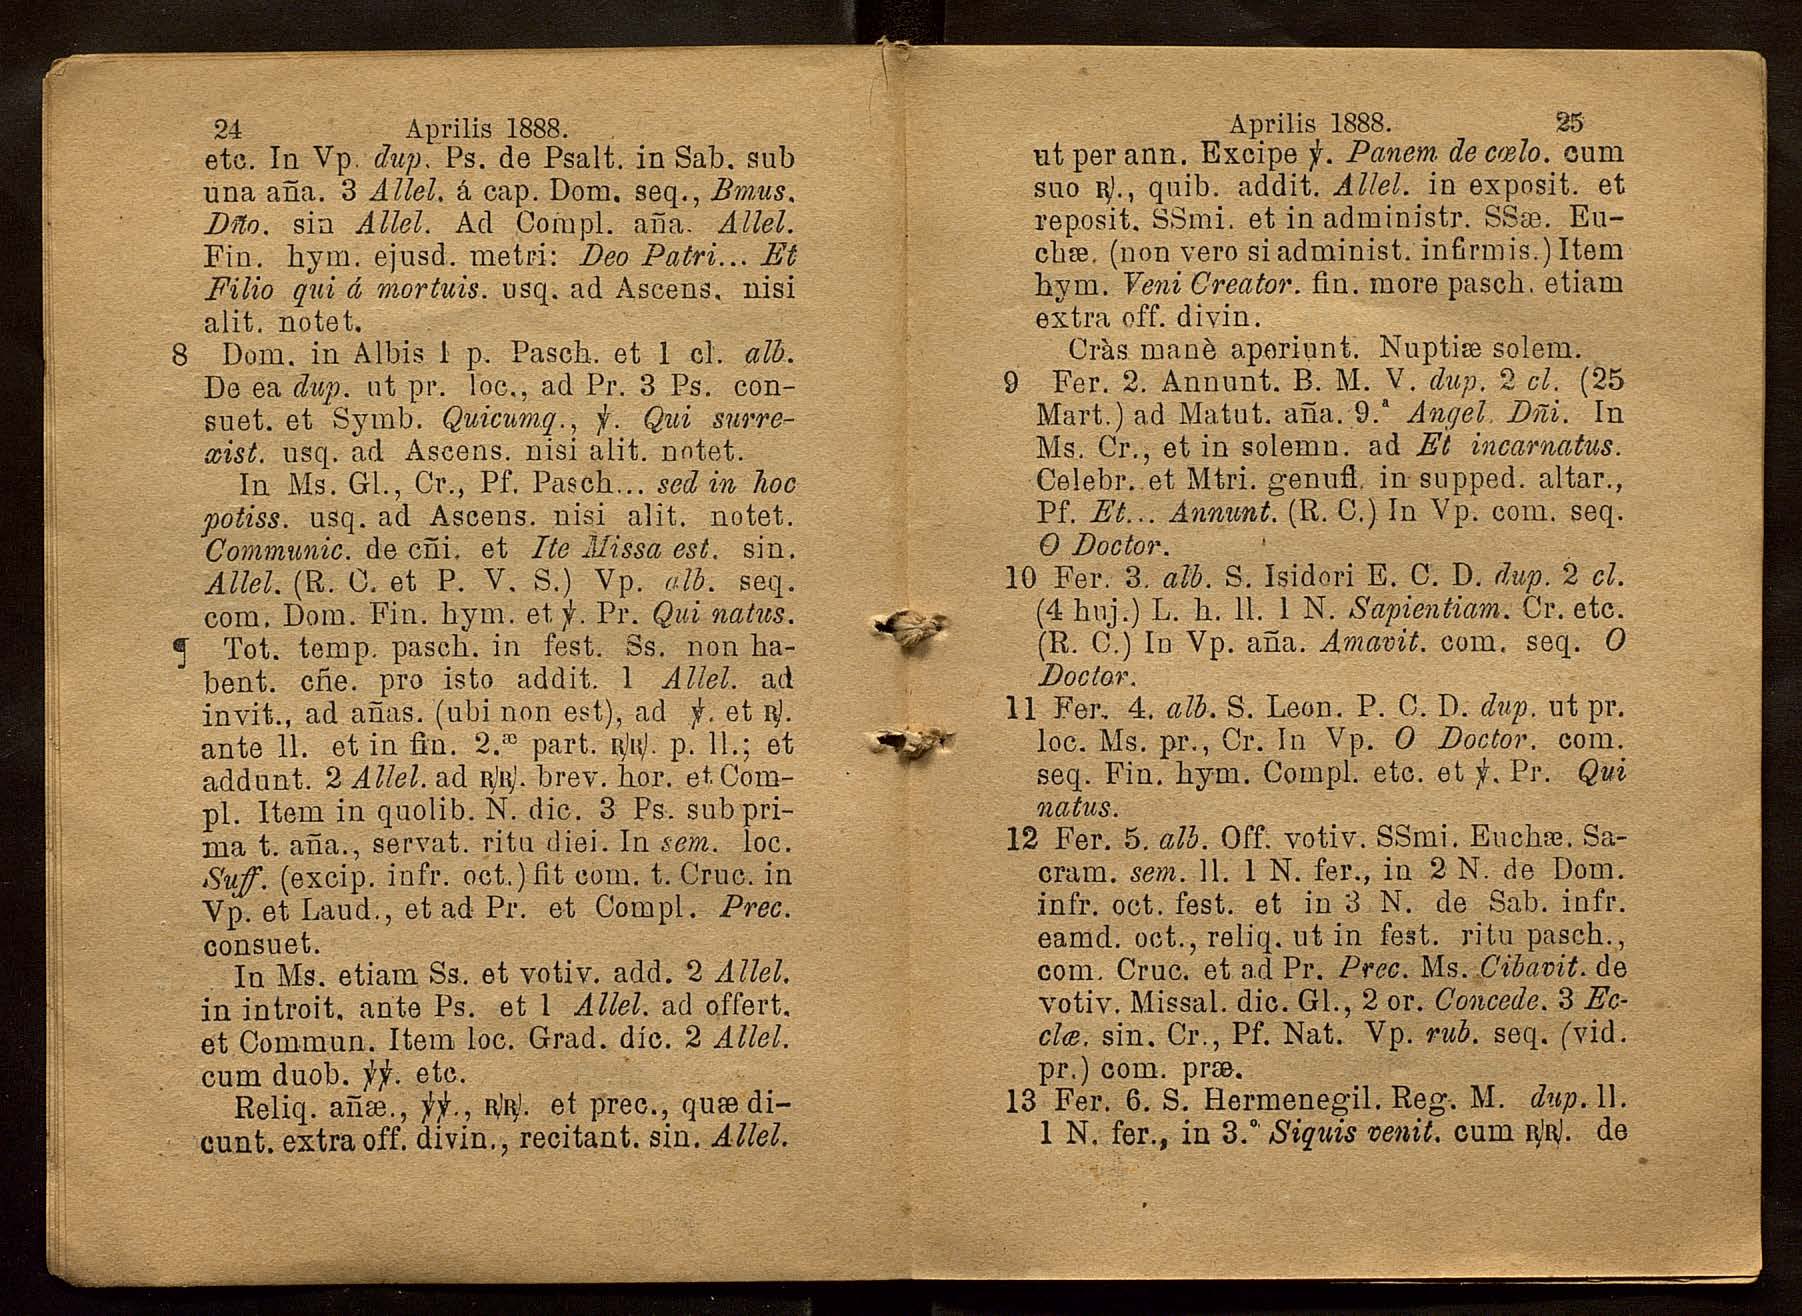 24 Aprilis 1888.
etc. In Vp. dup. Ps. de Psalt. in Sab. sub
una aña. 3 Allel. á cap. Dom. seq., Bmus.
Dño. sin Allel. Ad Compl. aña. Allel.
Fin. hym. ejusd. metri: Deo Patri... Et
Filio qui á mortuis. usq. ad Ascens. nisi
alit. notet.
8 Dom. in Albis 1 p. Pasch. et 1 cl. alb.
De ea dup. ut pr. loc., ad Pr. 3 Ps. con-
suet. et Symb. Quicumq., ℣. Qui surre-
xist. usq. ad Ascens. nisi alit. notet.
In Ms. Gl., Cr., Pf. Pasch... sed in hoc
potiss. usq. ad Ascens. nisi alit. notet.
Communic. de cñi. et Ite Missa est. sin.
Allel. (R. C. et P. V. S.) Vp. alb. seq.
com. Dom. Fin. hym. et ℣. Pr. Qui natus.
¶ Tot. temp. pasch. in fest. Ss. non ha-
bent. cñe. pro isto addit. 1 Allel. ad
invit., ad añas. (ubi non est), ad ℣. et ℟.
ante ll. et in fin. 2.æ part. ℟℟. p. ll.; et
addunt. 2 Allel. ad ℟℟. brev. hor. et Com-
pl. Item in quolib. N. dic. 3 Ps. sub pri-
ma t. aña., servat. ritu diei. In sem. loc.
Suff. (excip. infr. oct.) fit com. t. Cruc. in
Vp. et Laud., et ad Pr. et Compl. Prec.
consuet.
In Ms. etiam Ss. et votiv. add. 2 Allel.
in introit. ante Ps. et 1 Allel. ad offert.
et Commun. Item loc. Grad. díc. 2 Allel.
cum duob. ℣℣. etc.
Reliq. añæ., ℣℣., ℟℟. et prec., quæ di-
cunt. extra off. divin., recitant. sin. Allel.
Aprilis 1888. 25
ut per ann. Excipe ℣. Panem de cœlo. cum
suo ℟., quib. addit. Allel. in exposit. et
reposit. SSmi. et in administr. SSæ. Eu-
chæ. (non vero si administ. infirmis.) Item
hym. Veni Creator. fin. more pasch. etiam
extra off. divin.
Cràs manè aperiunt. Nuptiæ solem.
9 Fer. 2. Annunt. B. M. V. dup. 2 cl. (25
Mart.) ad Matut. aña. 9.ª Angel. Dñi. In
Ms. Cr., et in solemn. ad Et incarnatus.
Celebr. et Mtri. genufl. in supped. altar.,
Pf. Et... Annunt. (R. C.) In Vp. com. seq.
O Doctor.
10 Fer. 3. alb. S. Isidori E. C. D. dup. 2 cl.
(4 huj.) L. h. ll. 1 N. Sapientiam. Cr. etc.
(R. C.) In Vp. aña. Amavit. com. seq. O
Doctor.
11 Fer. 4. alb. S. Leon. P. C. D. dup. ut pr.
loc. Ms. pr., Cr. In Vp. O Doctor. com.
seq. Fin. hym. Compl. etc. et ℣. Pr. Qui
natus.
12 Fer. 5. alb. Off. votiv. SSmi. Euchæ. Sa-
cram. sem. ll. 1 N. fer., in 2 N. de Dom.
infr. oct. fest. et in 3 N. de Sab. infr.
eamd. oct., reliq. ut in fest. ritu pasch.,
com. Cruc. et ad Pr. Prec. Ms. Cibavit. de
votiv. Missal. dic. Gl., 2 or. Concede. 3 Ec-
clæ. sin. Cr., Pf. Nat. Vp. rub. seq. (vid.
pr.) com. præ.
13 Fer. 6. S. Hermenegil. Reg. M. dup. ll.
1 N. fer., in 3.º Siquis venit. cum ℟℟. de